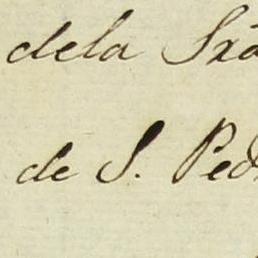 dela Sra
de S. Ped